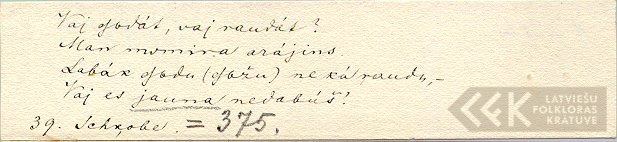 Vaj godát, vaj raudát?
Man nomira arájins.
Labák godu (gožu) ne ká raudu, –
Vaj es jauna nedabúš!
39. Schrobe. = 375.
LATVIEŠU
FOLKLORAS
KRĀTUVE